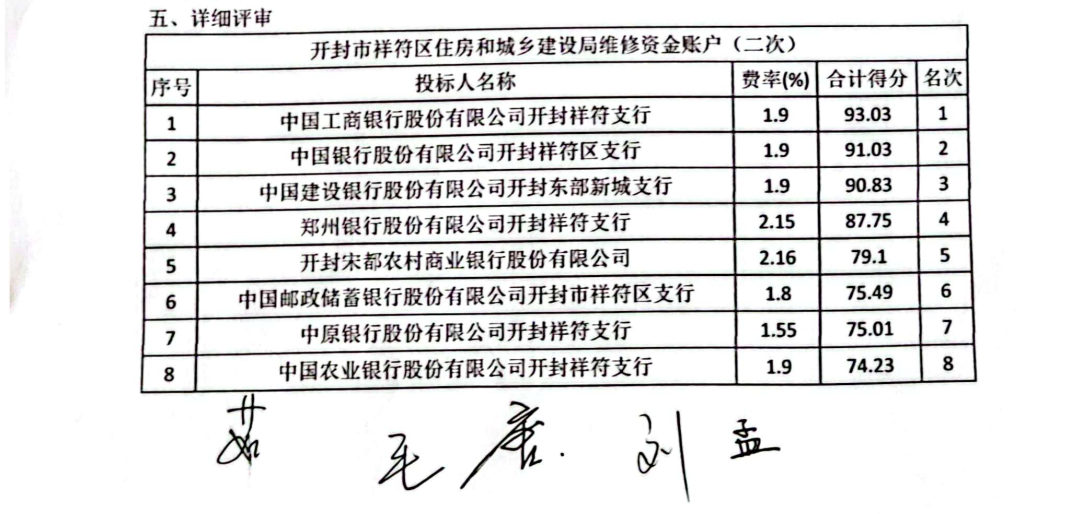 五、详细评审
开封市祥符区住房和城乡建设局维修资金账户（二次）
序号 投标人名称 费率(%) 合计得分 名次
1 中国工商银行股份有限公司开封祥符支行 1.9 93.03 1
2 中国银行股份有限公司开封祥符区支行 1.9 91.03 2
3 中国建设银行股份有限公司开封东部新城支行 1.9 90.83 3
4 郑州银行股份有限公司开封祥符支行 2.15 87.75 4
5 开封宋都农村商业银行股份有限公司 2.16 79.1 5
6 中国邮政储蓄银行股份有限公司开封市祥符区支行 1.8 75.49 6
7 中原银行股份有限公司开封祥符支行 1.55 75.01 7
8 中国农业银行股份有限公司开封祥符支行 1.9 74.23 8
茹 毛 唐 刘 孟